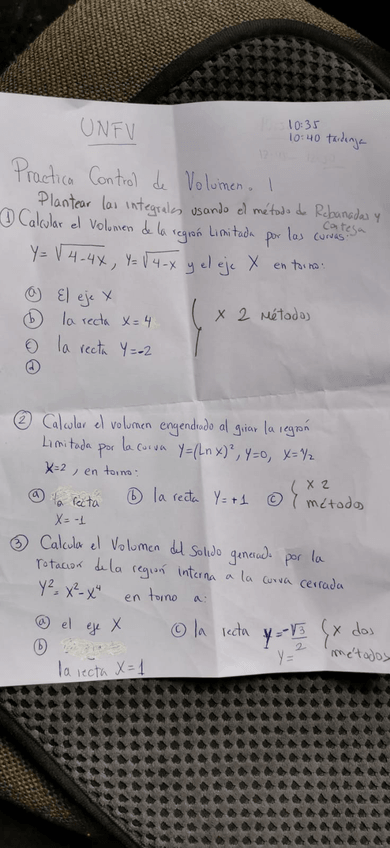 UNFV
10:35
10:40 tardanza
Practica Control de Volumen. 1
Plantear las integrales usando el método de Rebanadas y
Corteza
① Calcular el Volumen de la región Limitada por las curvas.
Y=√(4-4X), Y=√(4-X) y el eje X en torno:
ⓐ El eje X
ⓑ la recta X=4
ⓒ la recta Y=-2
ⓓ
{ x 2 Métodos
② Calcular el volumen engendrado al girar la región
Limitada por la curva Y=(Ln X)², Y=0, X=1/2
X=2, en torno:
ⓐ la recta ⓑ la recta Y=+1 ⓒ { x 2
X=-1 métodos
③ Calcular el Volumen del Solido generado por la
rotacion de la region interna a la curva cerrada
Y²=X²-X⁴ en torno a:
ⓐ el eje X ⓒ la recta Y=-√3/2 { x dos
ⓑ Y= métodos
la recta X=1